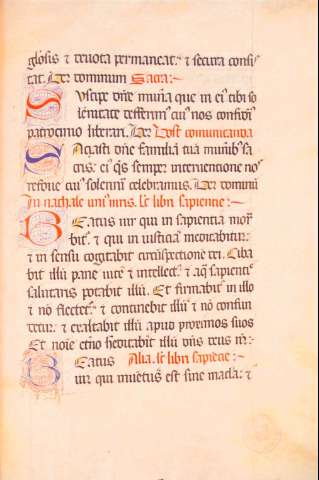 gloſis & deuota permaneat: & secura conſi
tat. Per dominum Sacra:~
Suſcipe dn̄e mun̄a que in ei᾽ tibi so
lēnitate defferim᾽ cui᾽ nos confidim᾽
patrocinio liberari. Per Post comunicanda
Saciaſti dn̄e familiā tuā munib᾽ sa
cris: ei᾽ q̄s semper interventione nos
refove cui᾽ solenn̄ celebramus. Per dominū
In nathale uni᾽ mris. lc̄ libri sapiencie:~
Beatus uir qui in sapientia mor
bit᾽. & qui in iusticia meditabitur:
& in sensu cogitabit circūspectionē dei. Ciba
bit illū pane uite & intellect᾽. & aq̄ sapientie
salutaris potabit illū. Et firmabit᾽ in illo
& nō flectet᾽: & continebit illū & nō confun
detur. & exaltabit illū apud proximos suos
Et noīe et̄no hēditabit illū dn̄s deus n̄r:
Beatus Alia. lc̄ libri sapiēcie:~
uir qui inuētus est sine macla: &